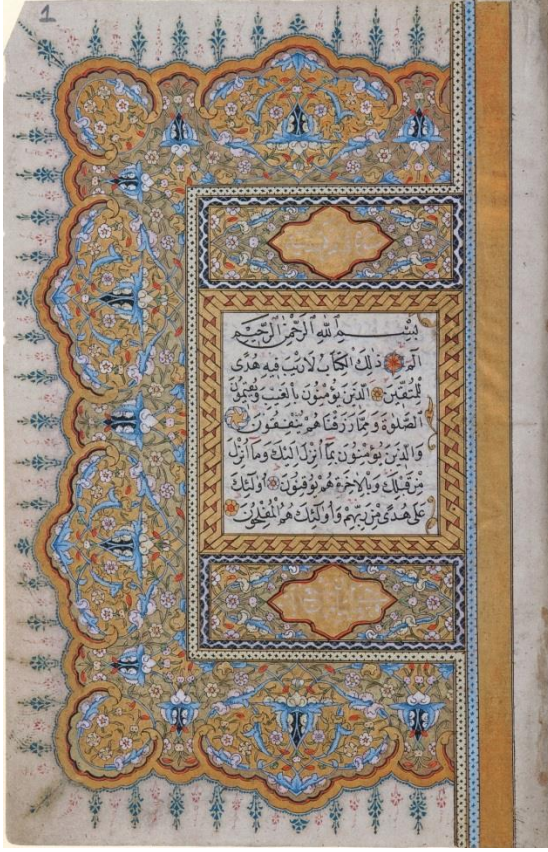 1
بِسْمِ اللّٰهِ الرَّحْمٰنِ الرَّحِيمِ
الٓمٓ ذٰلِكَ الْكِتَابُ لَا رَيْبَ فِيهِ هُدًى
لِلْمُتَّقِينَ الَّذِينَ يُؤْمِنُونَ بِالْغَيْبِ وَيُقِيمُونَ
الصَّلٰوةَ وَمِمَّا رَزَقْنَاهُمْ يُنْفِقُونَ
وَالَّذِينَ يُؤْمِنُونَ بِمَا اُنْزِلَ اِلَيْكَ وَمَا اُنْزِلَ
مِنْ قَبْلِكَ وَبِالْاٰخِرَةِ هُمْ يُوقِنُونَ اُولٰئِكَ
عَلٰى هُدًى مِنْ رَبِّهِمْ وَاُولٰئِكَ هُمُ الْمُفْلِحُونَ